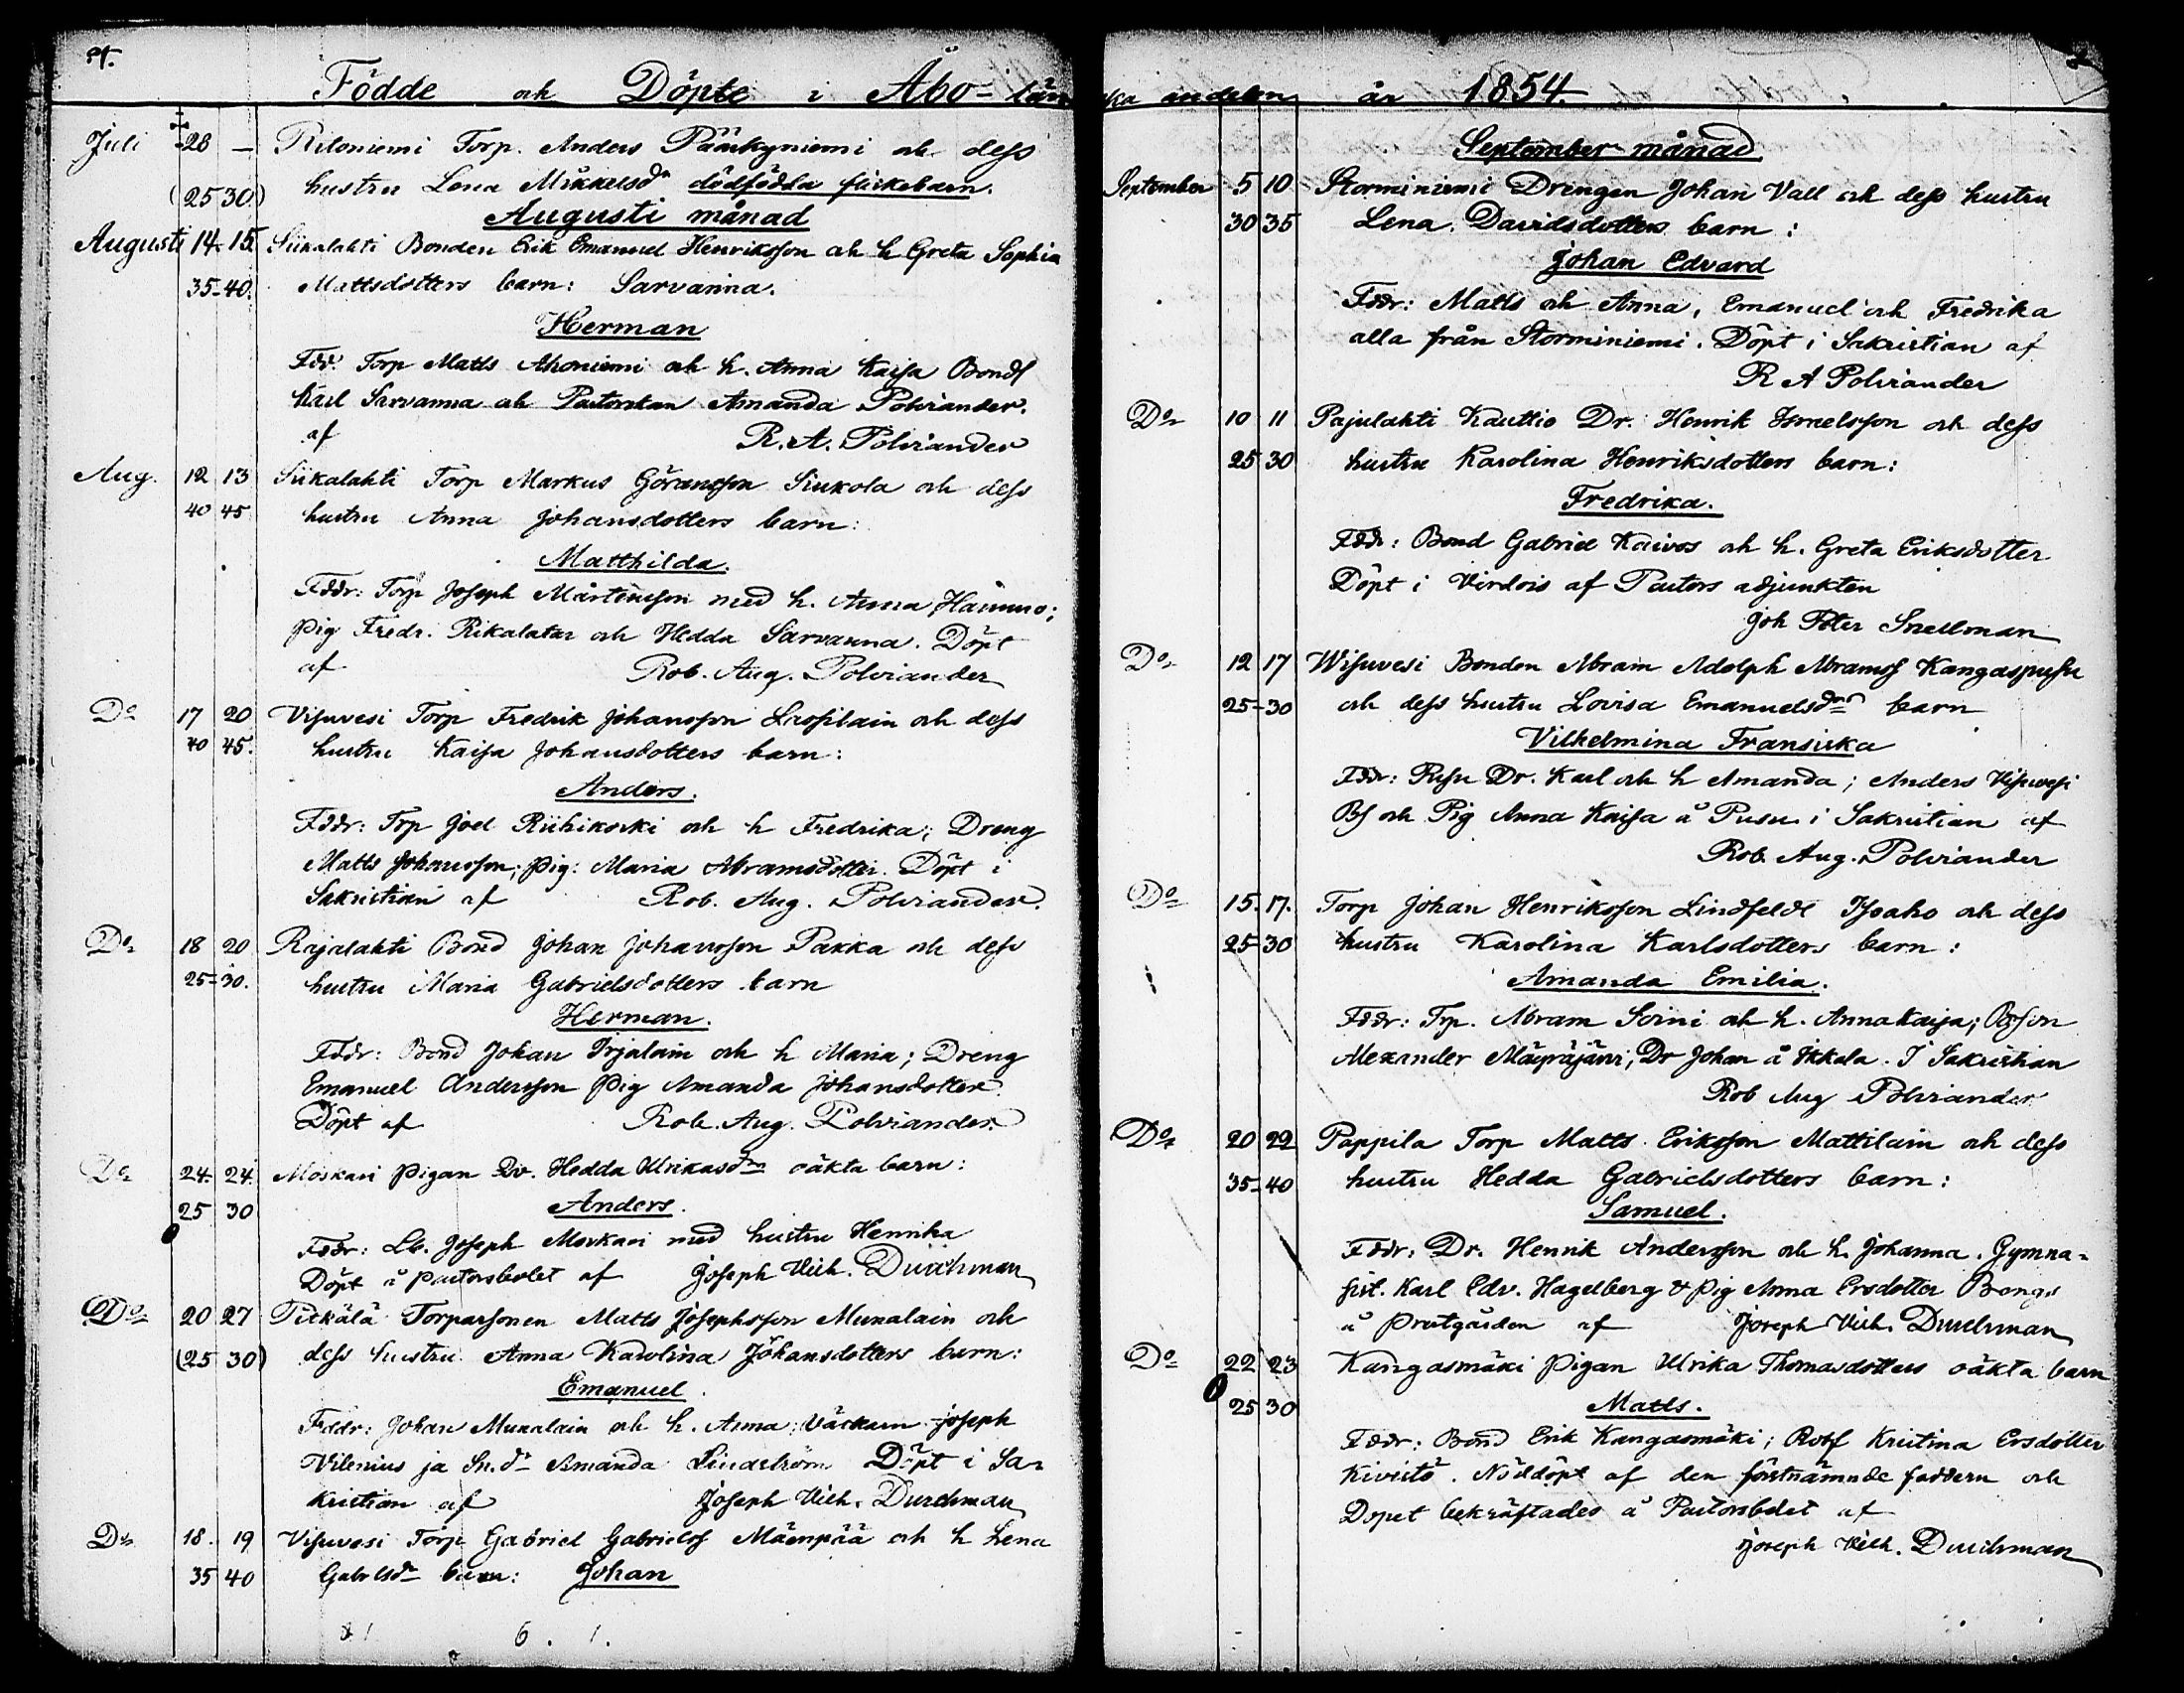 Födde och Döpte i Åbo-länska andelen år 1854.
Juli 28 — Riloniemi Torp. Anders Päärkyniemi och dess
(25 30) hustru Lena Mikkelsdr dödfödda flickebarn.
Augusti månad
Augusti 14. 15. Siikalahti Bonden Erik Emanuel Henriksson och h Greta Sophia
35-40. Mattsdotters barn: Sarvanna.
Herman
Fdr. Torp Matts Ahoniemi och h. Anna Kaisa Bondf
Karl Sarvanna och Pastorskan Amanda Polviander.
af R. A. Polviander
Aug. 12 13 Siikalahti Torp Markus Göransson Siukola och dess
40 45 hustru Anna Johansdotters barn:
Matthilda.
Fddr: Torp Joseph Mårtensson med h. Anna Hannus;
Pig Fredr. Rikalatar och Hedda Sarvanna. Döpt
af Rob. Aug. Polviander
Do 17 20 Visuvesi Torp Fredrik Johansson Liosilain och dess
40 45. hustru Kaisa Johansdotters barn:
Anders.
Fddr: Trp Joel Riihikoski och h Fredrika; Dreng
Matts Johansson; Pig: Maria Abramsdotter. Döpt i
Sakristian af Rob. Aug. Polviander.
Do 18 20 Rajalahti Bond Johan Johansson Pakka och dess
25-30. hustru Maria Gabrielsdotters barn
Herman.
Fddr: Bond Johan Irjalain och h Maria; Dreng
Emanuel Andersson Pig Amanda Johansdotter.
Döpt af Rob. Aug. Polviander.
Do 24. 24. Moskari Pigan Qv. Hedda Ulrikasdrs oäkta barn:
25 30 Anders.
Fddr: Lb. Joseph Moskari med hustru Henrika
Döpt å Pastorsbolet af Joseph Vilh. Durchman
Do 20 27 Pitkälä Torparsonen Matts Josephsson Munalain och
(25 30) dess hustru Anna Karolina Johansdotters barn:
Emanuel.
Fddr: Johan Munalain och h. Anna; Väckarn Joseph
Vilenius ja Sn.dr Amanda Lindström Döpt i Sa-
kristian af Joseph Vilh. Durchman
Do 18. 19 Visuvesi Torp Gabriel Gabrielsf Mäenpää och h Lena
35 40 Gabrlsdr barn: Johan
6. 1.
September månad
September 5 10 Storminiemi Drengen Johan Vall och dess hustru
30 35 Lena Davidsdotters barn:
Johan Edvard
Fddr: Matts och Anna, Emanuel och Fredrika
alla från Storminiemi. Döpt i Sakristian af
R A Polviander
Do 10 11 Pajulahti Kauttio Dr. Henrik Israelsson och dess
25 30 hustru Karolina Henriksdotters barn:
Fredrika.
Fddr: Bond Gabriel Kaivos och h. Greta Eriksdotter
Döpt i Virdois af Pastors adjunkten
Joh Peter Snellman
Do 12 17 Wisuvesi Bonden Abram Adolph Abramsf Kangaspusu
25-30 och dess hustru Lovisa Emanuelsdrs barn
Vilhelmina Fransiska
Fddr: Pusu Dr. Karl och h Amanda; Anders Visuvesi
Bs och Pig Anna Kaisa å Pusu i Sakristian af
Rob. Aug. Polviander
Do 15. 17. Torp Johan Henriksson Lindfeldt Isoaho och dess
25-30 hustru Karolina Karlsdotters barn:
Amanda Emilia.
Fddr: Trp. Abram Soini och h. Anna Kaisa; Bsson
Alexander Mäyräjärvi; Dr Johan å Ikkala. I Sakristian
Rob Aug Polviander
Do 20 22 Pappila Torp Matts Eriksson Mattilain och dess
35-40 hustru Hedda Gabrielsdotters barn:
Samuel.
Fddr: Dr. Henrik Andersson och h. Johanna. Gymna-
sist. Karl Edv. Hagelberg & Pig Anna Ersdotter Bongs
å Prestgården af Joseph Vilh. Durchman
Do 22 23 Kangasmäki Pigan Ulrika Thomasdotters oäkta barn
25 30 Matts.
Fddr: Bond Erik Kangasmäki; Rotf Kristina Ersdotter
Kivistö. Nöddöpt af den förstnämnde faddern och
Dopet bekräftades å Pastorsbolet af
Joseph Vilh. Durchman